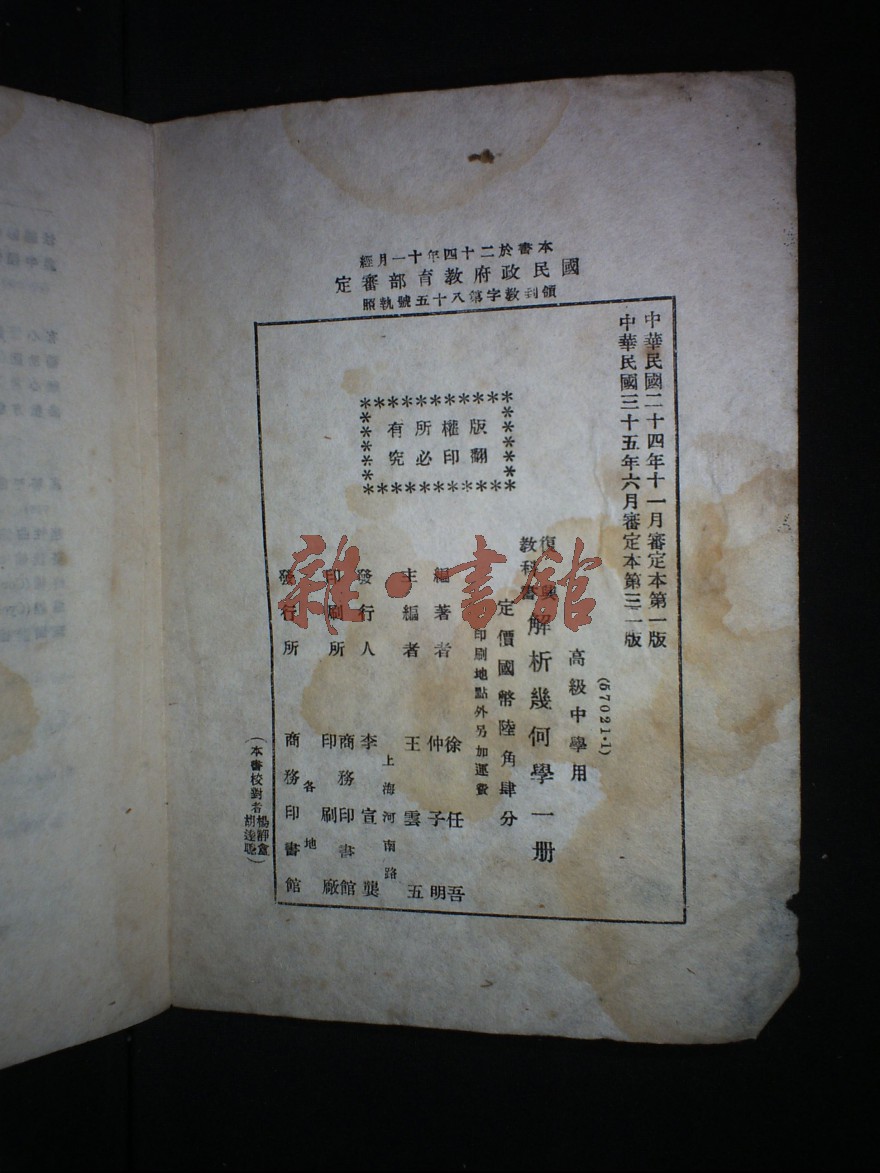 本書於二十四年十一月經
國民政府教育部審定
領到教字第八十五號執照
中華民國二十四年十一月審定本第一版
中華民國三十五年六月審定本第三二版
(57021·1)
高級中學用
復興教科書 解析幾何學一册
定價國幣陸角肆分
印刷地點外另加運費
編著者 徐任吾 仲子明
主編者 王雲五
上海河南路
發行人 李宣龔
印刷所 商務印書館印刷廠
發行所 各地商務印書館
版權所有
翻印必究
(本書校對者楊靜盦
胡達聰)
雜·書館